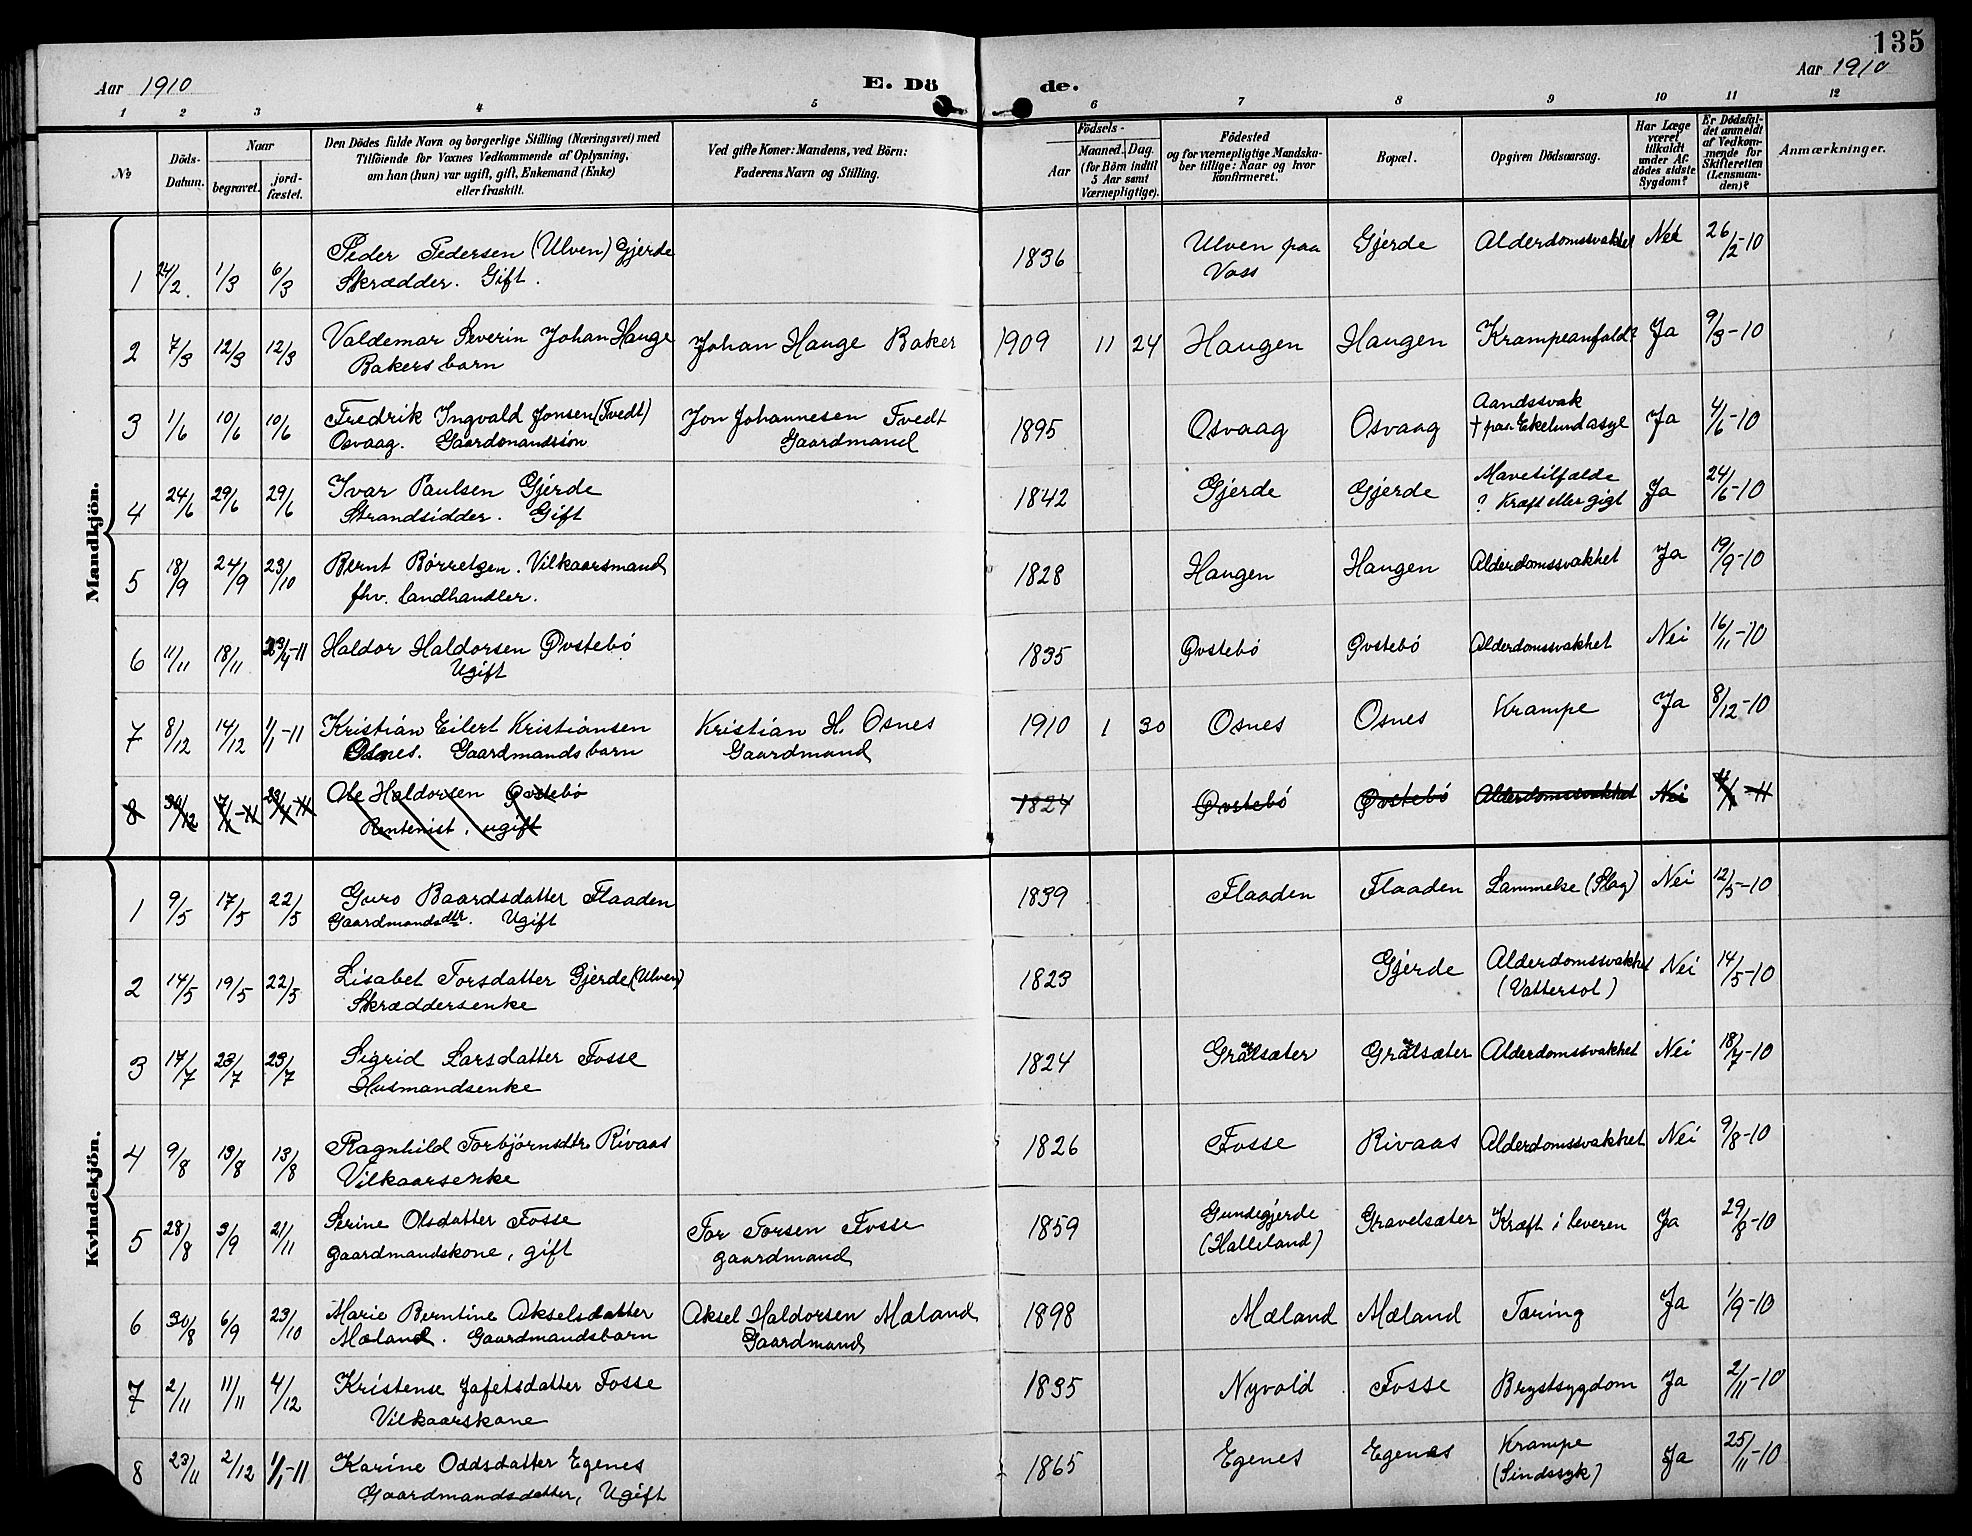 135
Aar 1910
E. Dö de.
Aar 1910
1 2 3 4 5 6 7 8 9 10 11 12
No
Döds-Datum.
Naar
begravet.
jordfæstet.
Den Dödes fulde Navn og borgerlige Stilling (Næringsvei) med
Tilföiende for Voxnes Vedkommende af Oplysning,
om han (hun) var ugift, gift, Enkemand (Enke)
eller fraskilt.
Ved gifte Koner: Mandens, ved Börn:
Faderens Navn og Stilling.
Födsels-
Aar
Maaned. Dag.
(for Börn indtil
5 Aar samt
Værnepligtige).
Födested
og for værnepligtige Mandska-
ber tillige: Naar og hvor
konfirmeret.
Bopæl.
Opgiven Dödsaarsag.
Har Læge
været
tilkaldt
under Af-
dödes sidste
Sygdom?
Er Dödsfal-
det anmeldt
af Vedkom-
mende for
Skifteretten
(Lensman-
den)?
Anmærkninger.
Mandkjön.
1 24/2 1/3 6/3 Peder Pedersen (Ulven) Gjerde 1836 Ulven paa Gjerde Alderdomssvakhet Nei 26/2-10
Skrædder. Gift. Voss
2 7/3 12/3 12/3 Valdemar Severin Johan Hauge Johan Hauge Baker 1909 11 24 Haugen Haugen Krampeanfald? Ja 9/3-10
Bakers barn
3 1/6 10/6 10/6 Fredrik Ingvald Jonsen (Tvedt) Jon Johannesen Tvedt 1895 Osvaag Osvaag Aandssvak Ja 4/6-10
Osvaag. Gaardmandssön Gaardmand † paa Ekelund asyl
4 24/6 29/6 29/6 Ivar Paulsen Gjerde 1842 Gjerde Gjerde Mavetilfælde Ja 24/6-10
Strandsidder. Gift ? Kræft eller gigt
5 18/9 24/9 23/10 Bernt Børretzen. Vilkaarsmand 1828 Haugen Haugen Alderdomssvakhet Ja 19/9-10
fhv. landhandler.
6 11/11 18/11 23/4-11 Haldor Haldorsen Øvstebö 1835 Øvstebö Øvstebö Alderdomssvakhet Nei 16/11-10
Ugift
7 8/12 14/12 1/1-11 Kristian Eilert Kristiansen Kristian H. Osnes 1910 1 30 Osnes Osnes Krampe Ja 8/12-10
Osnes. Gaardmands barn Gaardmand
8 30/12 7/1-11 23/4-11 Ole Haldorsen Øvstebö 1824 Øvstebö Øvstebö Alderdomssvakhet Nei 4/1-11
Rentenist, ugift
Kvindekjön.
1 9/5 17/5 22/5 Guro Baardsdatter Flaaden 1839 Flaaden Flaaden Lammelse (Slag) Nei 12/5-10
Gaardmandsdtr. Ugift
2 14/5 19/5 22/5 Lisabet Torsdatter Gjerde (Ulven) 1823 Gjerde Alderdomssvakhet Nei 14/5-10
Skræddersenke (Vattersot)
3 17/7 23/7 23/7 Sigrid Larsdatter Fosse 1824 Gralsæter Gralsæter Alderdomssvakhet Nei 18/7-10
Husmandsenke
4 9/8 13/8 13/8 Ragnhild Torbjörnsdtr Rivaas 1826 Fosse Rivaas Alderdomssvakhet Nei 9/8-10
Vilkaarsenke
5 28/8 3/9 21/11 Serine Olsdatter Fosse Tor Torsen Fosse 1859 Gundegjerde Gravelsæter Kræft i leveren Ja 29/8-10
gaardmandskone, gift gaardmand (Halleland)
6 30/8 6/9 23/10 Marie Berntine Akselsdatter Aksel Haldorsen Mæland 1898 Mæland Mæland Tæring Ja 1/9-10
Mæland. Gaardmandsbarn Gaardmand
7 2/11 11/11 4/12 Kristense Jafetsdatter Fosse 1835 Nyvold Fosse Brystsygdom Ja 2/11-10
Vilkaarskone
8 23/11 2/12 1/1-11 Karine Oddsdatter Egenes 1865 Egenes Egenes Krampe Ja 25/11-10
Gaardmandsdatter, Ugift (Sindssyk)